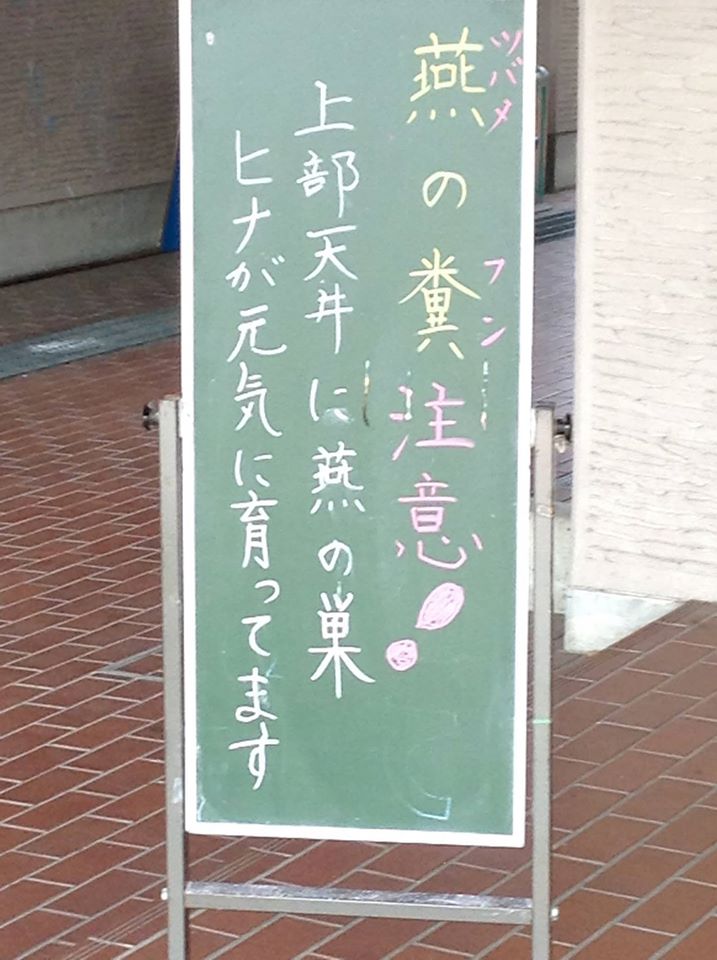 燕の糞注意!
ツバメ
フン
上部天井に燕の巣
ヒナが元気に育ってます